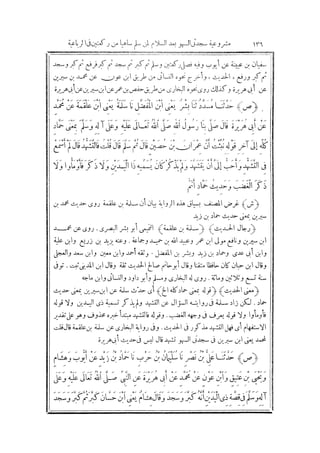 ١٣٦ مشروعية سجدتى السهو بعد السلام لمن سلم ساهيا من ركعتين فى الرباعية
سفيان بن عيينة عن أيوب وفيه فصلى ركعتين وسلم ثم كبر ثم سجد ثم كبر فرفع ثم كبر وسجد
ثم كبر ورفع، الحديث. وأخرج نحوه النسائى من طريق ابن عون عن محمد بن سيرين
عن أبى هريرة
(ص) حدثنا مسدد نا بشر يعنى ابن المفضل نا سلمة يعنى ابن علقمة عن محمد
عن أبى هريرة قال صلى بنا رسول الله صلى الله تعالى عليه وعلى آله وسلم بمعنى حماد
كله إلى آخر قوله نبئت أن عمران بن حصين قال ثم سلم قال قلت فالتشهد قال لم أسمع
فى التشهد وأحب إلى أن يتشهد ولم يذكر كان يسميه ذا اليدين ولا ذكر فأومأوا ولا
ذكر الغضب وحديث حماد أتم
(ش) غرض المصنف بسياق هذه الرواية بيان أن سلمة بن علقمة روى حديث محمد بن
سيرين بمعنى حديث حماد بن زيد
(رجال الحديث) (سلمة بن علقمة) التميمى أبو بشر البصرى. روى عن محمد
ابن سيرين ونافع مولى ابن عمر وعبيد الله بن حميد وجماعة. وعنه يزيد بن زريع وابن علية
وابن أبى عدى وحماد بن زيد وبشر بن المفضل. وثقه أحمد وابن معين وابن سعد والعجلى
وقال ابن حبان كان حافظا متقنا وقال أبو حاتم صالح الحديث ثقة وقال ابن المدينى ثبت. توفى
سنة تسع وثلاثين ومائة. روى له البخارى ومسلم وأبو داود والنسائى وابن ماجه
(معنى الحديث) (قوله بمعنى حماد كله الخ) أى حدث سلمة عن ابن سيرين بمعنى حديث
حماد. لكن زاد سلمة فى روايته السؤال عن التشهد ولم يذكر تسمية ذى اليدين ولا قوله
فأومأوا ولا قوله يعرف فى وجهه الغضب. وقوله فالتشهد مبتدأ خبره محذوف وهو على تقدير
الاستفهام أى فهل التشهد مذكور فى الحديث. وفى رواية البخارى عن سلمة بن علقمة قال قلت
لمحمد يعنى ابن سيرين فى سجدتى السهو تشهد قال ليس فى حديث أبى هريرة
(ص) حدثنا على بن نصر نا سليمان بن حرب نا حماد بن زيد عن أيوب وهشام
ويحيى بن عتيق وابن عون عن محمد عن أبى هريرة عن النبى صلى الله تعالى عليه وعلى
آله وسلم فى قصة ذى اليدين أنه كبر وسجد وقال هشام يعنى ابن حسان كبر ثم كبر وسجد